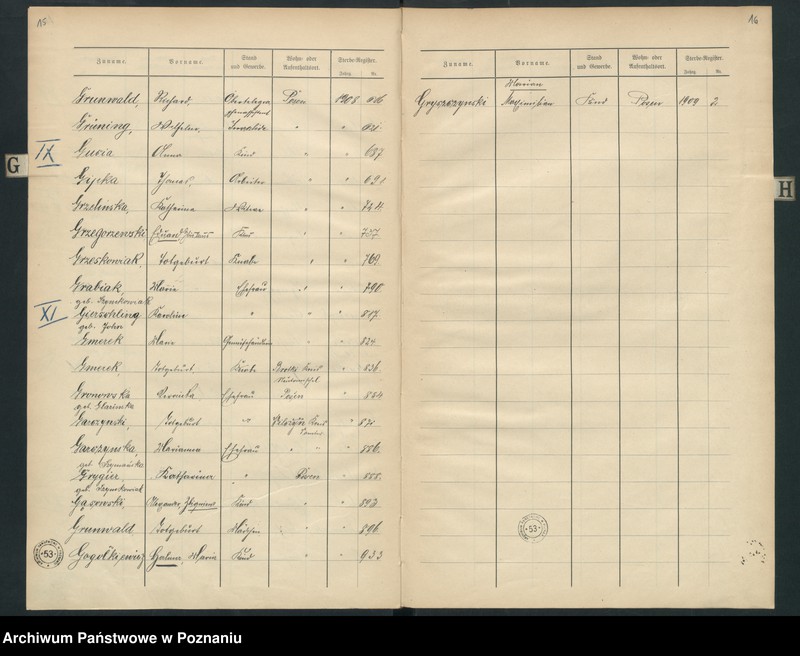 15
Zuname. Vorname. Stand und Gewerbe. Wohn- oder Aufenthaltsort. Sterbe-Register. Jahrg. Nr.
Grunwald, Richard, Posen 1908
Grüning, Wilhelm, Invalide " "
IX
Gucia Anna Kind " " 637
Gipka Thomas, Arbeiter " "
Grzelinska, Katharina Witwe " " 744
Grzegorzewski Eduard " " 757
Grzeskowiak, Totgeburt Knabe " " 769.
Grabiak, Marie Ehefrau " " 790
geb. Szymkowiak
XI
Gierschling Karoline " " " 817.
geb. John
Gmerek Hans " " 824
Gmerek Totgeburt Knabe " 836
Gronowska Veronika Ehefrau Posen " 854
Garczynski, Totgeburt " "
Garczynska, Marianna Ehefrau " " " 886.
geb. Szymańska
Grygier, Katharina " Posen " 888.
geb. Szymkowiak
Gąsowski, Kind " " 893
Grunwald, Totgeburt Mädchen " " 896
Gogolkiewicz Halina, Maria Kind " " 933
53
G
16
Zuname. Vorname. Stand und Gewerbe. Wohn- oder Aufenthaltsort. Sterbe-Register. Jahrg. Nr.
Florian
Gryszczynski Maximilian Kind Posen 1909 2
53
H
Archiwum Państwowe w Poznaniu